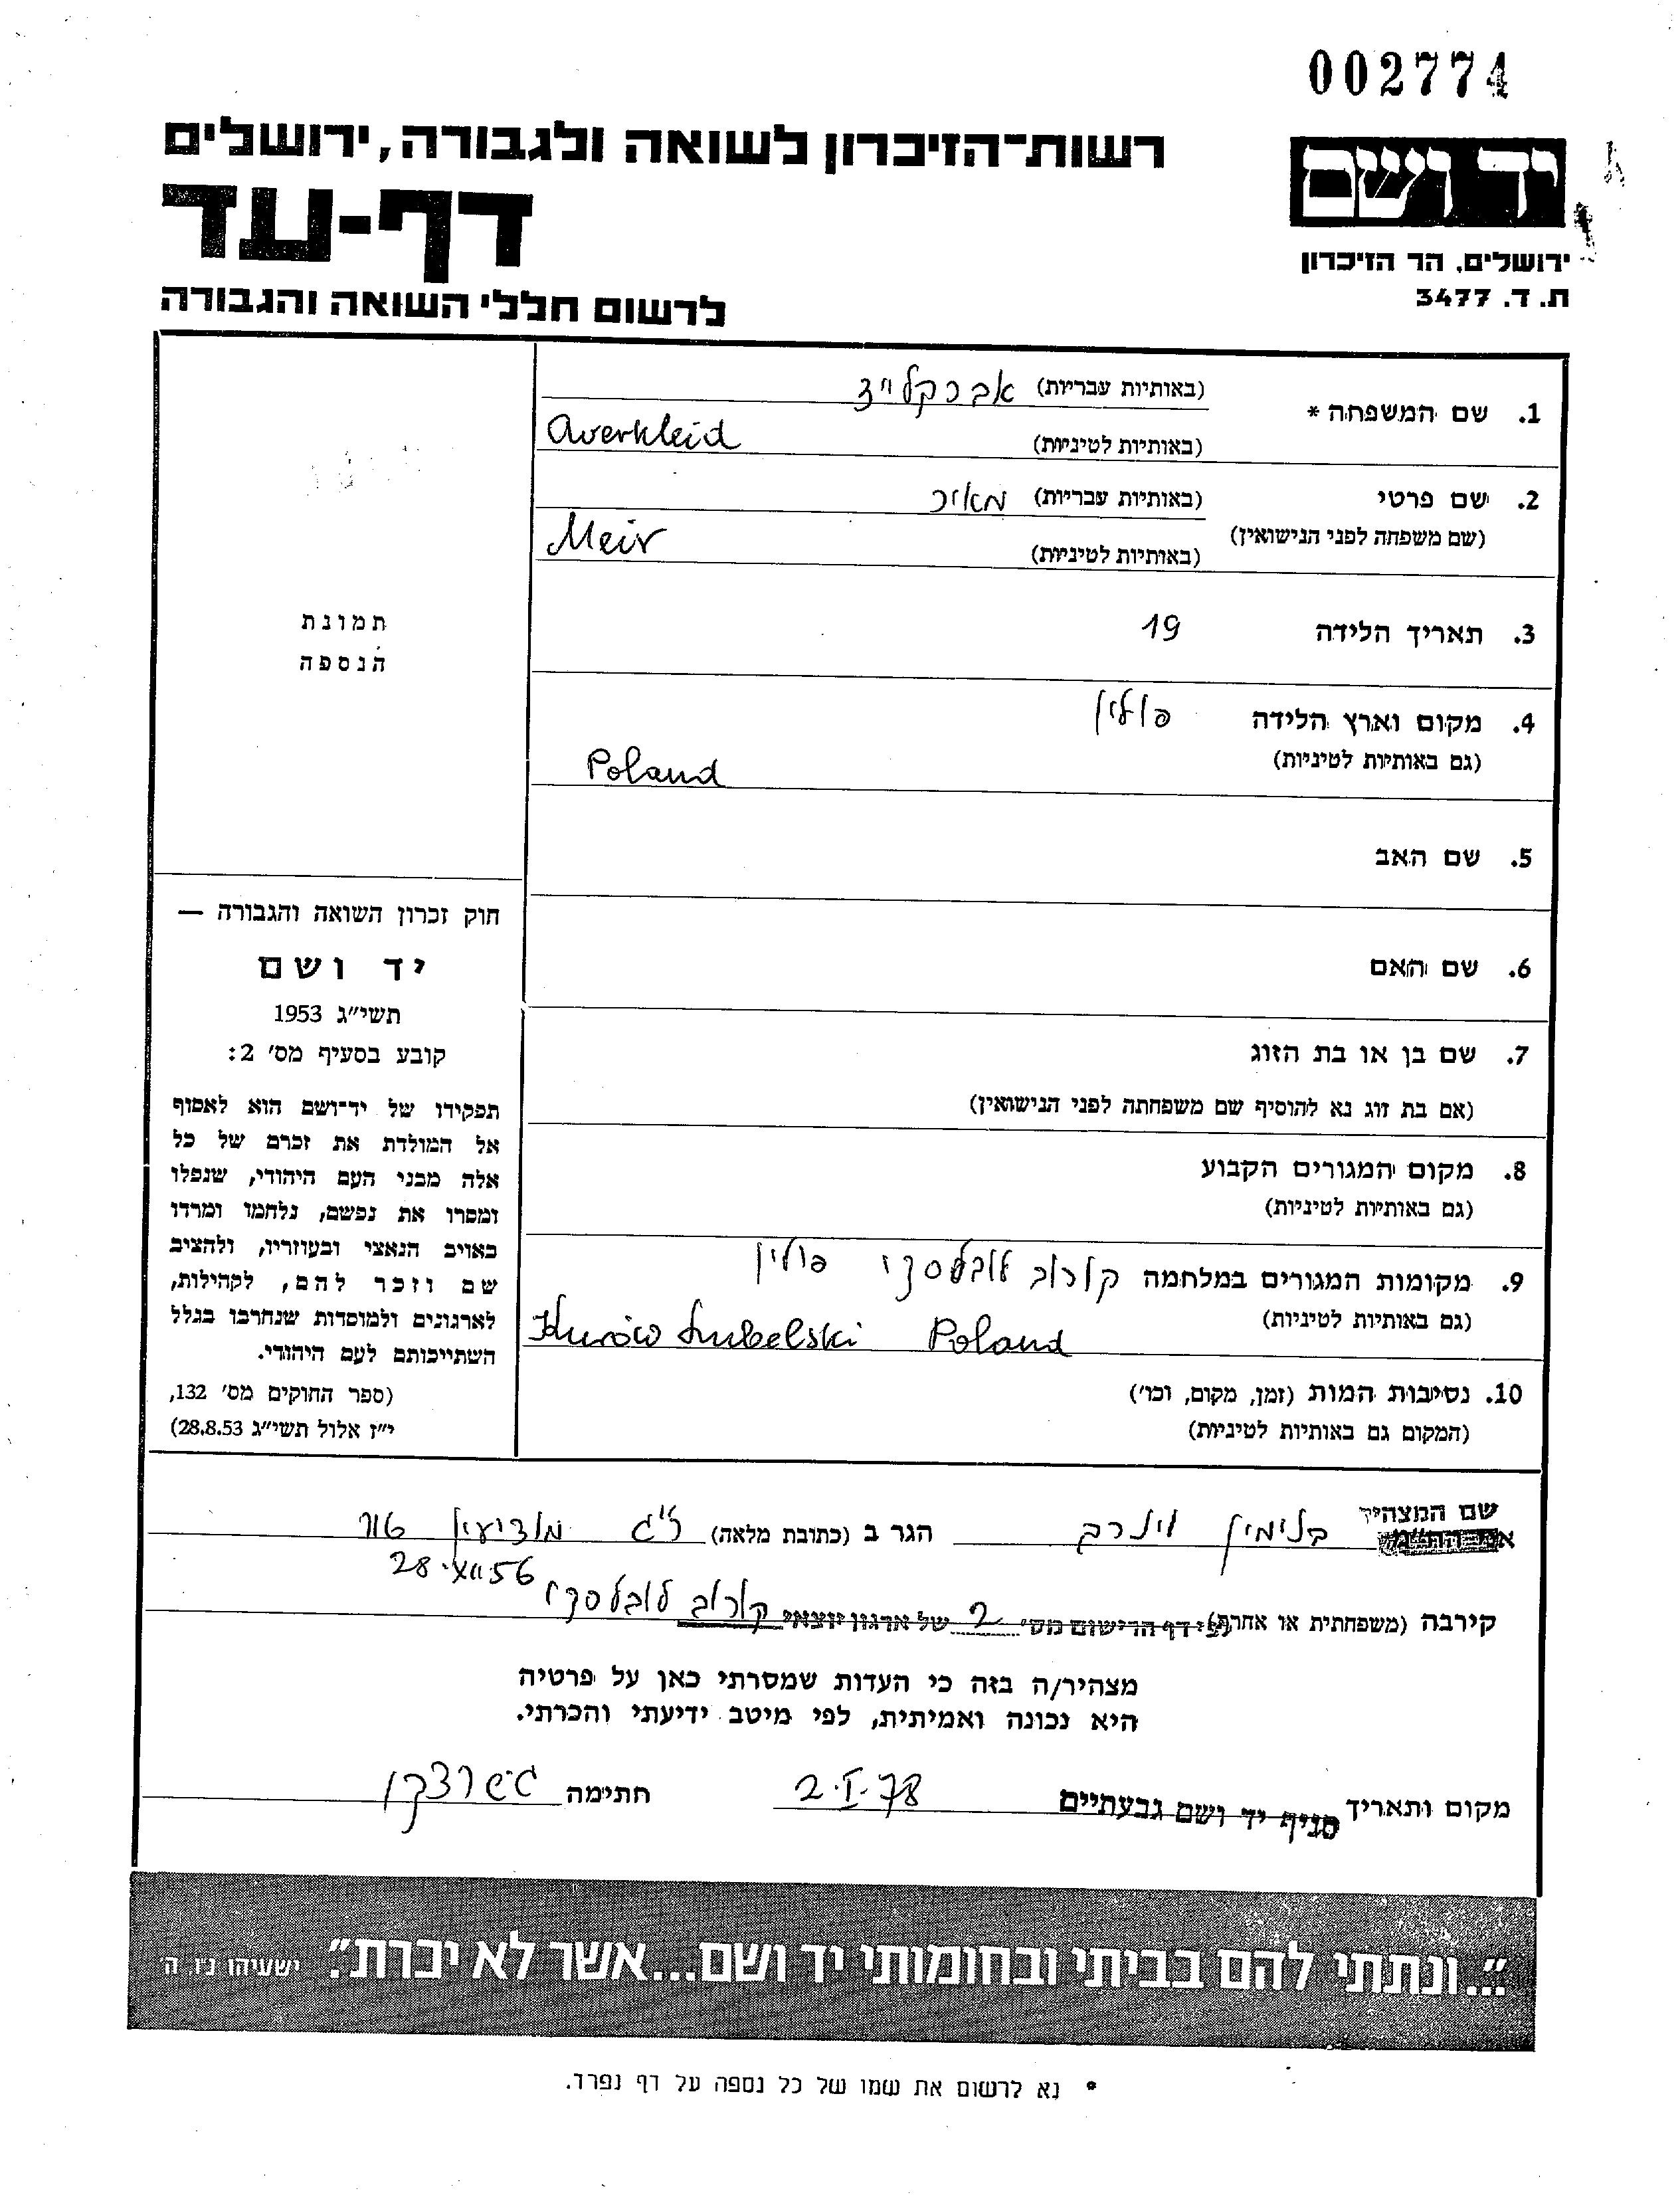 002774
רשות־הזיכרון לשואה ולגבורה, ירושלים
יד ושם
דף-עד
ירושלים, הר הזיכרון
ת. ד. 3477
לרשום חללי השואה והגבורה
1. שם המשפחה * (באותיות עבריות) אברקלייד
(באותיות לטיניות) Averkleid
2. שם פרטי (באותיות עבריות) מאיר
(שם משפחה לפני הנישואין) (באותיות לטיניות) Meir
תמונת
הנספה
3. תאריך הלידה 19
4. מקום וארץ הלידה פולין
(גם באותיות לטיניות) Poland
5. שם האב
6. שם האם
7. שם בן או בת הזוג
(אם בת זוג נא להוסיף שם משפחתה לפני הנישואין)
8. מקום המגורים הקבוע
(גם באותיות לטיניות)
9. מקומות המגורים במלחמה קורוב לובלסקי פולין
(גם באותיות לטיניות) Kurów Lubelski Poland
10. נסיבות המות (זמן, מקום, וכו')
(המקום גם באותיות לטיניות)
חוק זכרון השואה והגבורה —
יד ושם
תשי״ג 1953
קובע בסעיף מס׳ 2:
תפקידו של יד־ושם הוא לאסוף
אל המולדת את זכרם של כל
אלה מבני העם היהודי, שנפלו
ומסרו את נפשם, נלחמו ומרדו
באויב הנאצי ובעוזריו, ולהציב
שם וזכר להם, לקהילות,
לארגונים ולמוסדות שנחרבו בגלל
השתייכותם לעם היהודי.
(ספר החוקים מס׳ 132,
י״ז אלול תשי״ג 28.8.53)
שם המצהיר בנימין וינרב הגר ב (כתובת מלאה) מודיעין
קירבה (משפחתית או אחרת) עפ״י דף הרישום מס׳ 2 של ארגון יוצאי קורוב לובלסקי
מצהיר/ה בזה כי העדות שמסרתי כאן על פרטיה
היא נכונה ואמיתית, לפי מיטב ידיעתי והכרתי.
מקום ותאריך סניף יד ושם גבעתיים 2.I.78 חתימה
״...ונתתי להם בביתי ובחומותי יד ושם...אשר לא יכרת״. ישעיהו נ״ו, ה׳
* נא לרשום את שמו של כל נספה על דף נפרד.